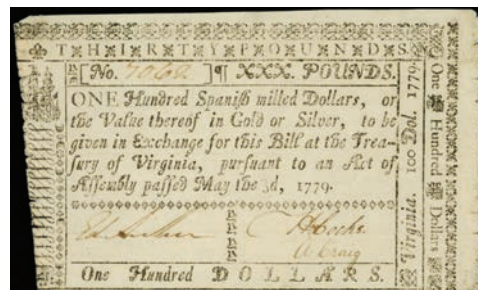 THIRTY POUNDS.
No. 7068 ¶ XXX. POUNDS.
ONE Hundred Spanish milled Dollars, or
the Value thereof in Gold or Silver, to be
given in Exchange for this Bill at the Trea-
sury of Virginia, pursuant to an Act of
Assembly passed May the 3d, 1779.
H Cocke
A Craig
One Hundred DOLLARS.
Virginia. 100 Dol. 1779.
One Hundred Dollars